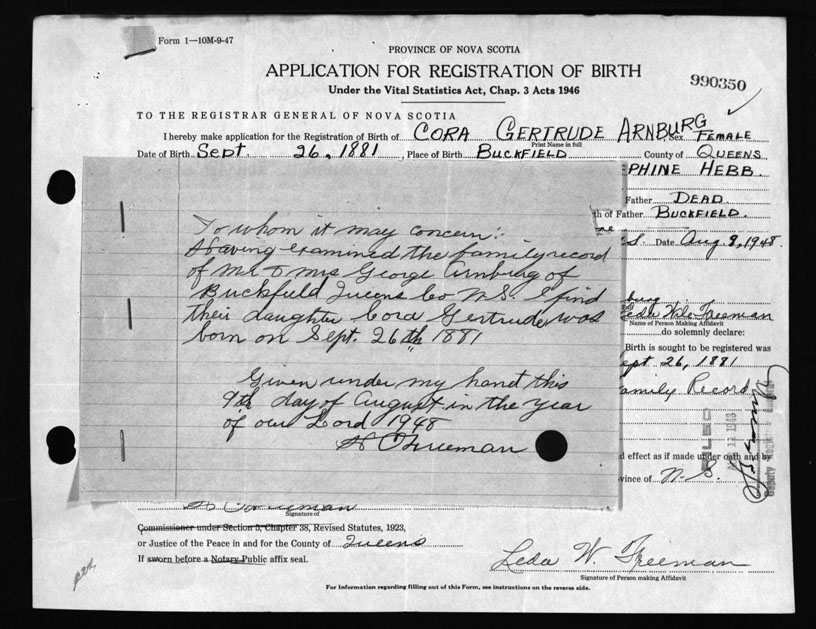 Form 1—10M-9-47
PROVINCE OF NOVA SCOTIA
APPLICATION FOR REGISTRATION OF BIRTH
990350
Under the Vital Statistics Act, Chap. 3 Acts 1946
TO THE REGISTRAR GENERAL OF NOVA SCOTIA
I hereby make application for the Registration of Birth of CORA GERTRUDE ARNBURG Sex FEMALE
Print Name in full
Date of Birth Sept. 26, 1881, Place of Birth BUCKFIELD County of QUEENS
PHINE HEBB
Father DEAD
th of Father BUCKFIELD.
S. Date Aug 9, 1948
To whom it may concern:
Having examined the family record
of Mr & Mrs George Arnburg of
Buckfield Queens Co N.S. I find
their daughter Cora Gertrude was
born on Sept. 26th 1881
Given under my hand this
9th day of August in the year
of our Lord 1948
burg
Leda Wile Freeman
Name of Person Making Affidavit
do solemnly declare:
Birth is sought to be registered was
ept 26, 1881
amily Record
FILED
Deputy
d effect as if made under oath and by
vince of N. S.
Signature of
Commissioner under Section 5, Chapter 38, Revised Statutes, 1923,
or Justice of the Peace in and for the County of Queens
If sworn before a Notary Public affix seal.
Leda W. Freeman
Signature of Person making Affidavit
For Information regarding filling out of this Form, see instructions on the reverse side.